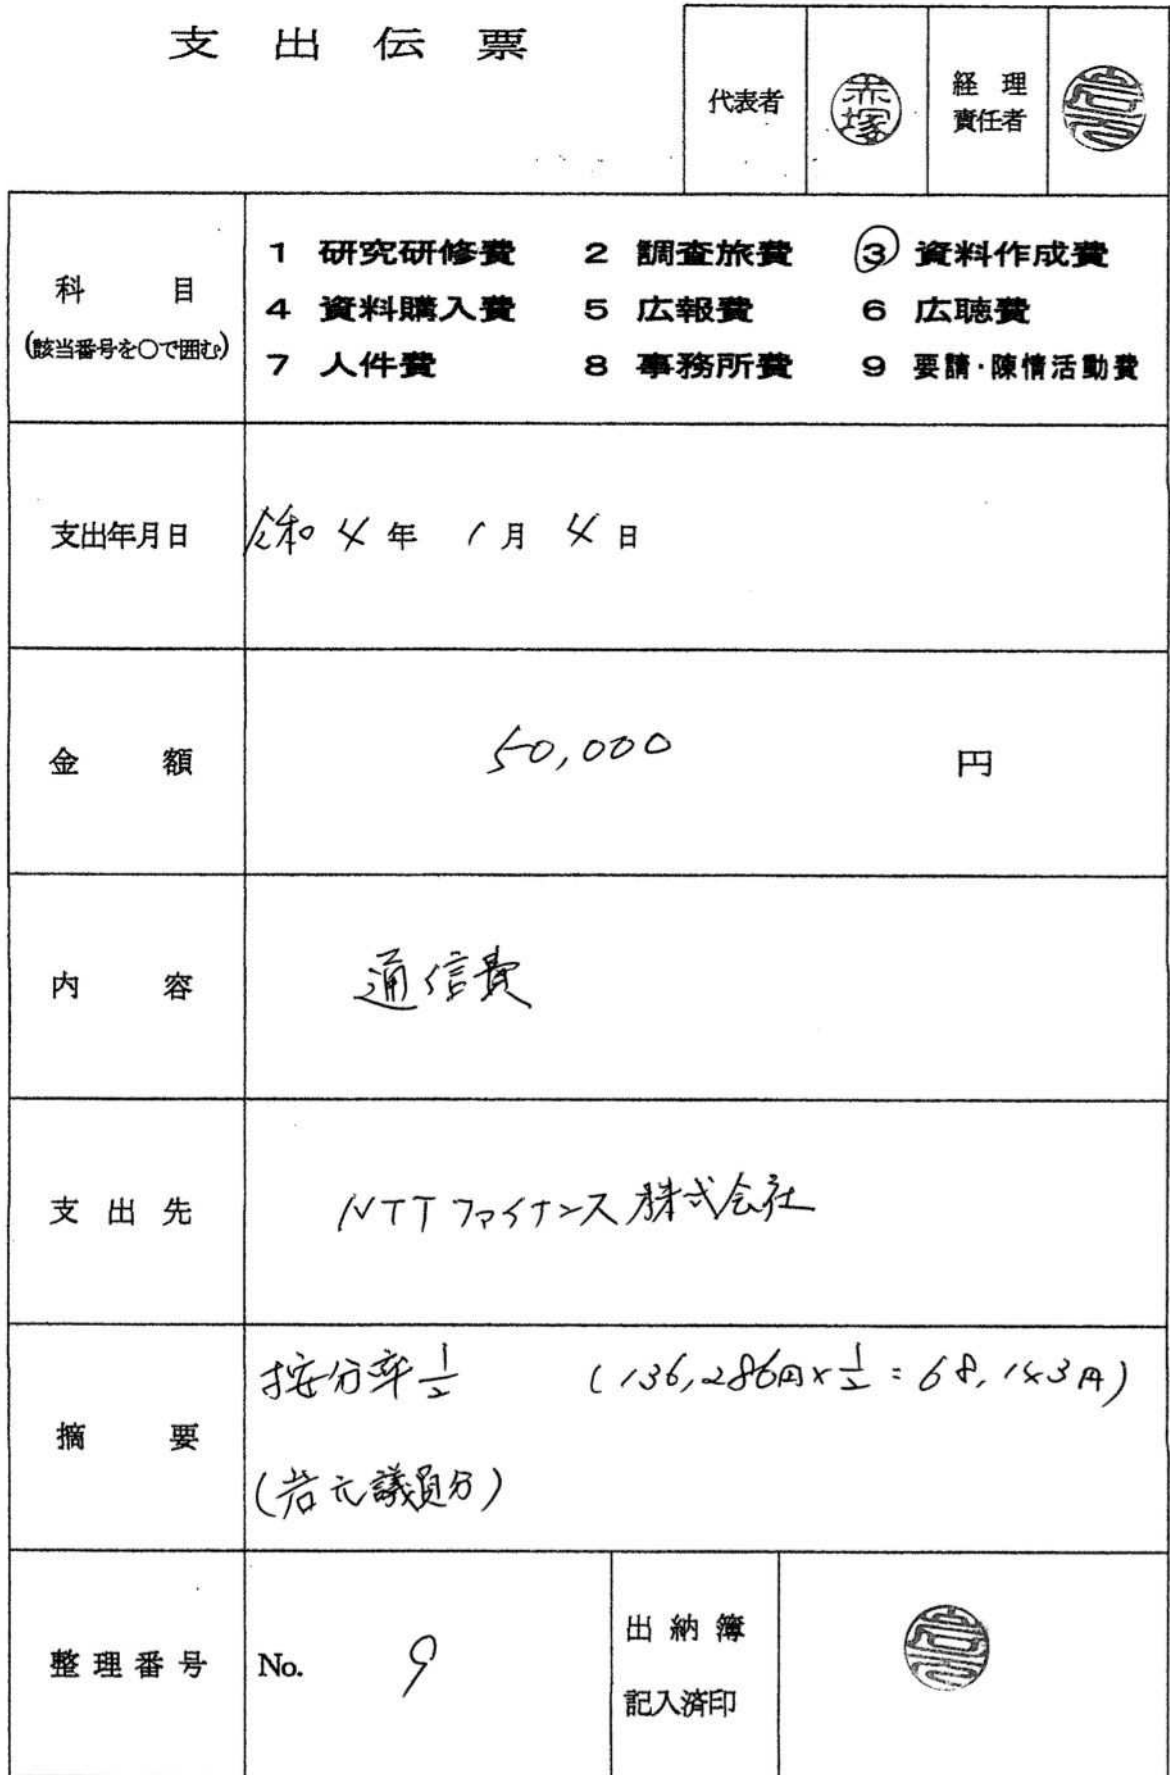 支出伝票
代表者
赤塚
経理
責任者
科目
(該当番号を○で囲む)
1 研究研修費 2 調査旅費 ③ 資料作成費
4 資料購入費 5 広報費 6 広聴費
7 人件費 8 事務所費 9 要請・陳情活動費
支出年月日
令和 4 年 1 月 4 日
金額
50,000 円
内容
通信費
支出先
NTTファイナンス株式会社
摘要
按分率1/2 (136,286円×1/2=68,143円)
(岩元議員分)
整理番号
No. 9
出納簿
記入済印